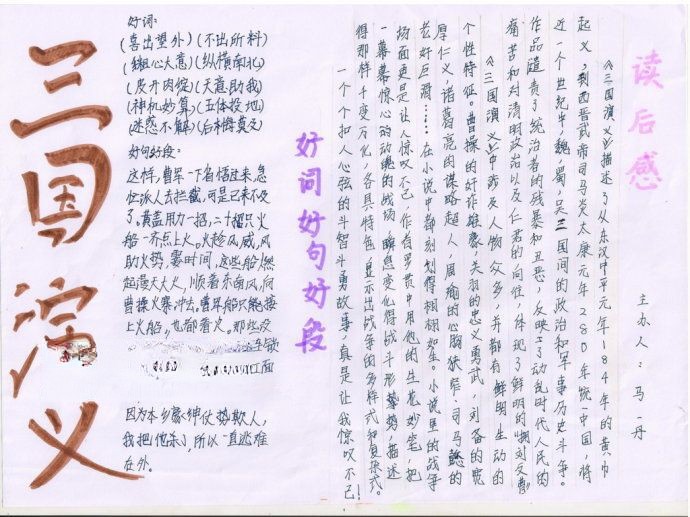 三国演义
好词:
(喜出望外)(不出所料)
(粗心大意)(纵横南北)
(皮开肉绽)(天意助我)
(神机妙算)(五体投地)
(迷惑不解)(后悔莫及)
好句好段:
这时,曹军一下省悟过来,急
忙派人去拦截,可是已来不及
了,黄盖用力一招,二十艘只火
船一齐点上火。火趁风威,风
助火势,霎时间,这些船燃
起漫天大火,顺着东南风,向
曹操火寨冲去,曹军船只能接
上火船,也都着火。那些
因为本乡豪绅仗势欺人,
我把他杀了,所以一直逃难
在外。
好词好句好段
读后感
主办人:马一丹
《三国演义》描述了从东汉中平元年184年的黄巾
起义,到西晋武帝司马炎太康元年280年统一中国,将
近一个世纪中,魏,蜀,吴三国间的政治和军事历史斗争。
作品谴责了统治者的残暴和丑恶,反映了动乱时代人民的
痛苦和对清明政治以及仁君的向往,体现了鲜明的
《三国演义》中涉及人物众多,并都有鲜明生动的
个性特征。曹操的奸诈雄豪,关羽的忠义勇武,刘备的宽
厚仁义,诸葛亮的谋略超人,周瑜的心胸狭窄,司马懿的
老奸巨滑……在小说中都刻划得栩栩如生。小说里的战争
场面更是让人惊叹不已,作者罗贯中用他的生花妙笔,把
一幕幕惊心的动魄的战场,瞬息变化得战斗形势,描述
得那样千变万化,各具特色,显示出战争的多样式和复杂式。
一个个扣人心弦的斗智斗勇故事,真是让我惊叹不已!